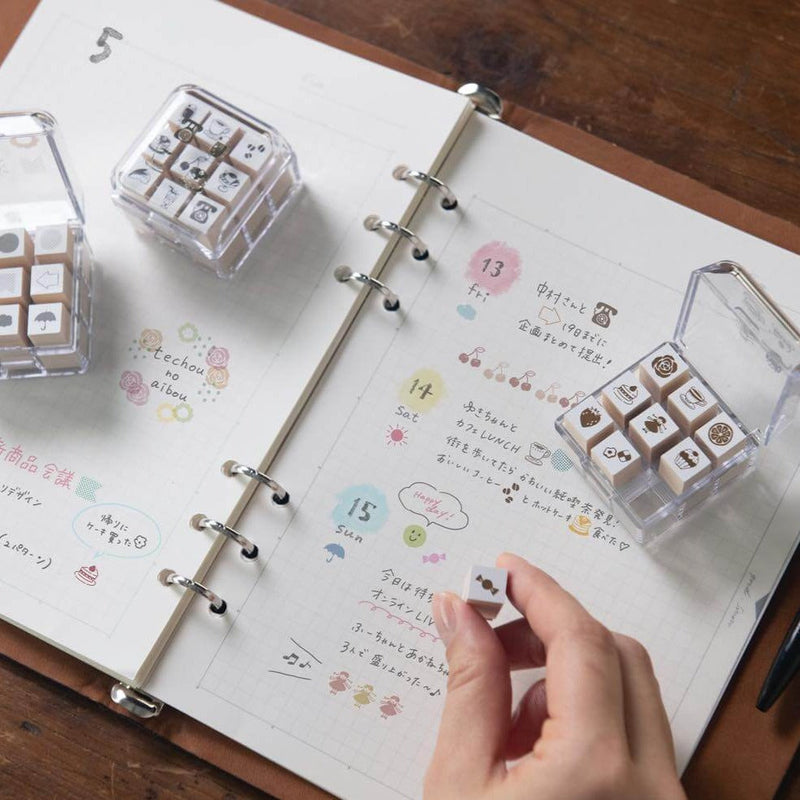 5
techou
no
aibou
商品会議
りデザイン
(2パターン)
帰りに
ケーキ買った
13
fri
中村さんと
19日までに
企画まとめて提出!
14
Sat
ゆきちゃんと
カフェLUNCH
街を歩いてたら かわいい純喫茶発見!
おいしいコーヒー と ホットケーキ 食べた♡
15
Sun
Happy
day!
今日は待ち
オンラインLIV
ふーちゃんとあかねちゃ
3人で盛り上がった〜♪